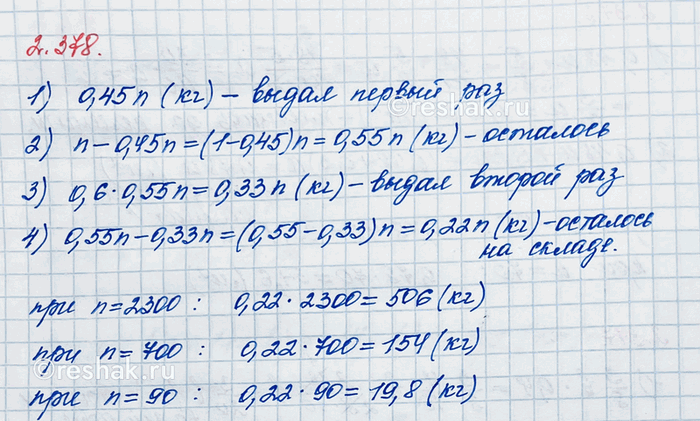 2.378.
1) 0,45n (кг) – выдал первый раз
2) n – 0,45n = (1–0,45)n = 0,55n (кг) – осталось
3) 0,6 · 0,55n = 0,33n (кг) – выдал второй раз
4) 0,55n – 0,33n = (0,55 – 0,33)n = 0,22n (кг) – осталось
на складе.
при n = 2300 : 0,22 · 2300 = 506 (кг)
при n = 700 : 0,22 · 700 = 154 (кг)
при n = 90 : 0,22 · 90 = 19,8 (кг)
©reshak.ru
©reshak.ru